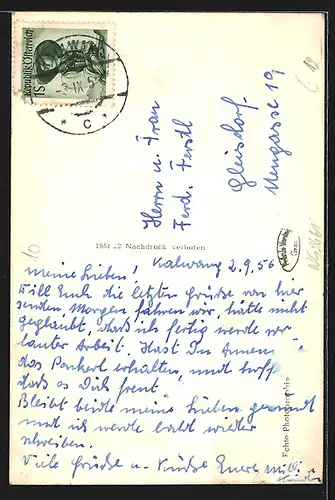 Republik Österreich
1S
c
Herrn u. Frau
Ferd. Ferstl
Gleisdorf
Neugasse 19
1951 22 Nachdruck verboten
Echte Photographie
Kalwang 2.9.56
meine Lieben!
Will Euch die letzten Grüße von hier
senden, Morgen fahren wir, hätte nicht
geglaubt, dass ich fertig werde vor
lauter Arbeit. Hast Du
das Packerl erhalten, und hoff
dass es Dich freut.
Bleibt beide meine Lieben gesund
und ich werde bald wieder
schreiben.
Viele Grüße u. Küsse Eure